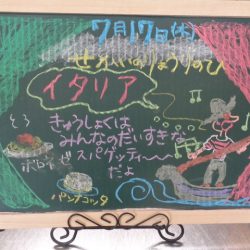 7月17日(木)
せかいのりょうりのひ
イタリア
きゅうしょくは
みんなのだいすきな
スパゲッティ〜〜
だよ
パンナコッタ